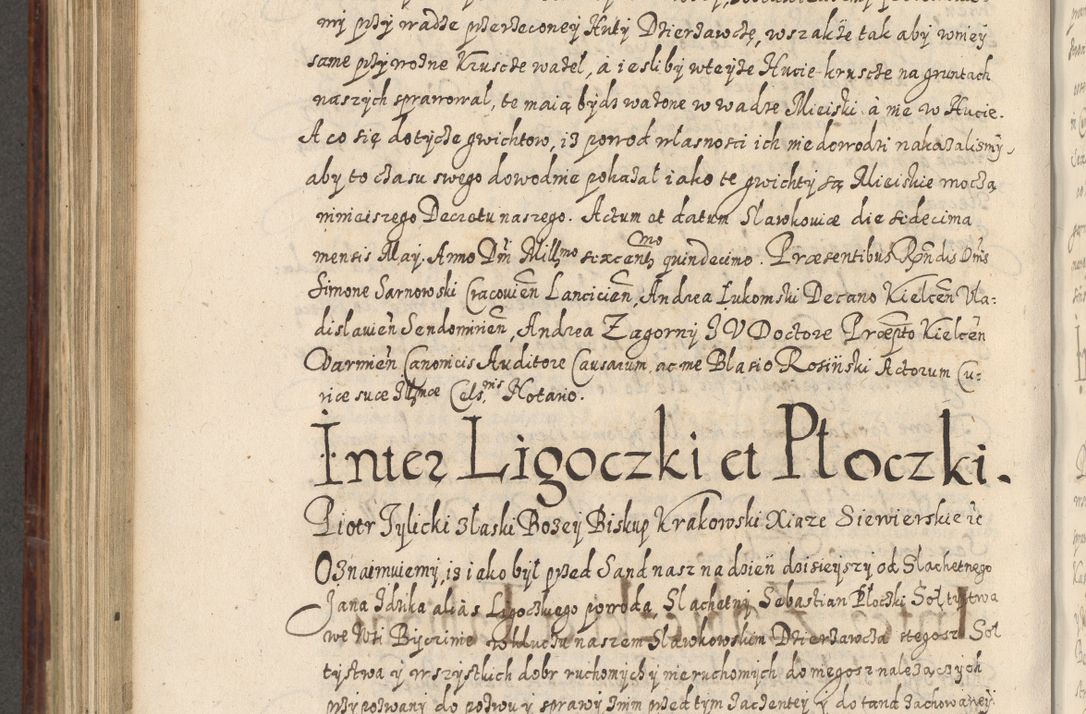 my przy wadze rzeczoney Huty Dzierżawczę, wszakże tak aby wniey
same przywozne Kruscze ważel, a iesliby wteyże Hucie kruscze na gruntach
naszych sprawowal, te maią bydz ważone w wadze Mieiski a nie w Hucie.
A co się dotycze gwichtow, iz powod własnosci ich nie dowodzi nakazalismy
aby to czasu swego dowodnie pokazał iako te gwichty są Mieiskie moczą
ninieiszego Decretu naszego. Actum et datum Slawkoviæ die sedecima
mensis May. Anno Dnı Mill̃mo sexcentmo quindecimo. Præsentibus Rñdis Dñis
Simone Sarnowski Cracovień Lancicień, Andrea Lukomski Decano Kielceń Vla-
dislavień Sendomirień, Andrea Zagorny I V Doctore Præpto Kielceń
Varmień Canonicis Auditore Causarum, ac me Blasio Rosiński Actorum Cu-
riæ suæ Illmæ Cels.nis Notario.
Inter Ligoczki et Płoczki.
Piotr Tylicki z łaski Bozey Biskup Krakowski Xiąze Siewierskie etc
Oznaimuiemy, iz iako był przed Sand nasz na dzień dzisieyszy od Slachetnego
Jana Zduka alias Ligoczkiego powoda Slachetny Sebastian Płoczki Soltystwa
we Wsi Bijczinie w kluczu naszem Sławkowskim Dzierżawcza tegosz Sol
tystwa y wszystkich dobr ruchomych y nieruchomych do niegosz należączych
przypozwany do pozwu y sprawy w nim przed tym zaczentey y do tand zachowaney